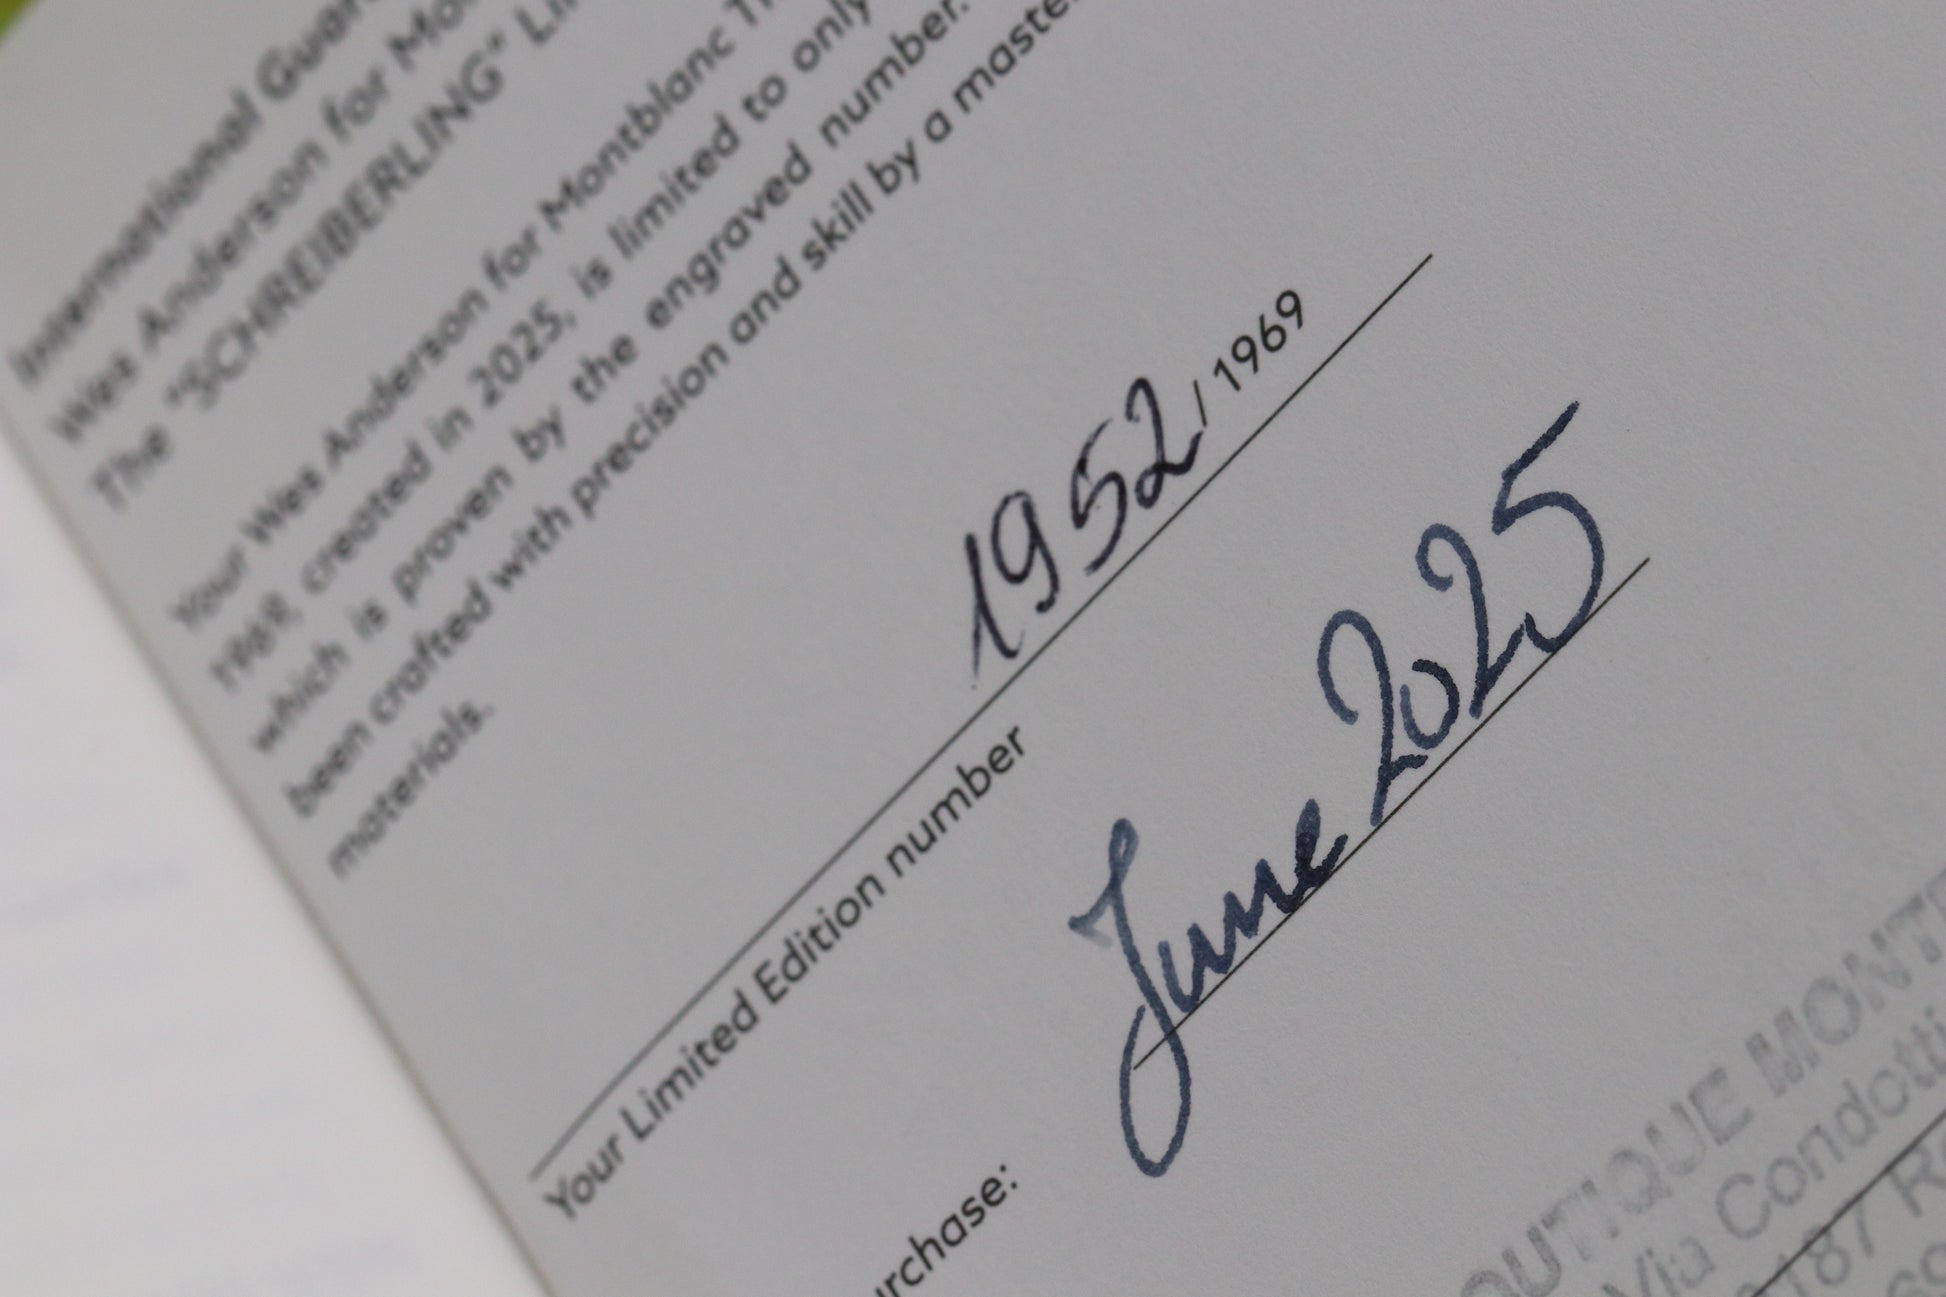 International Guar
Wes Anderson for Mo
The "SCHREIBERLING" Li
Your Wes Anderson for Montblanc T
1969, created in 2025, is limited to only
which is proven by the engraved number.
been crafted with precision and skill by a maste
materials.
1952 / 1969
Your Limited Edition number
urchase: June 2025
OUTIQUE MONT
Via Condotti
187 R